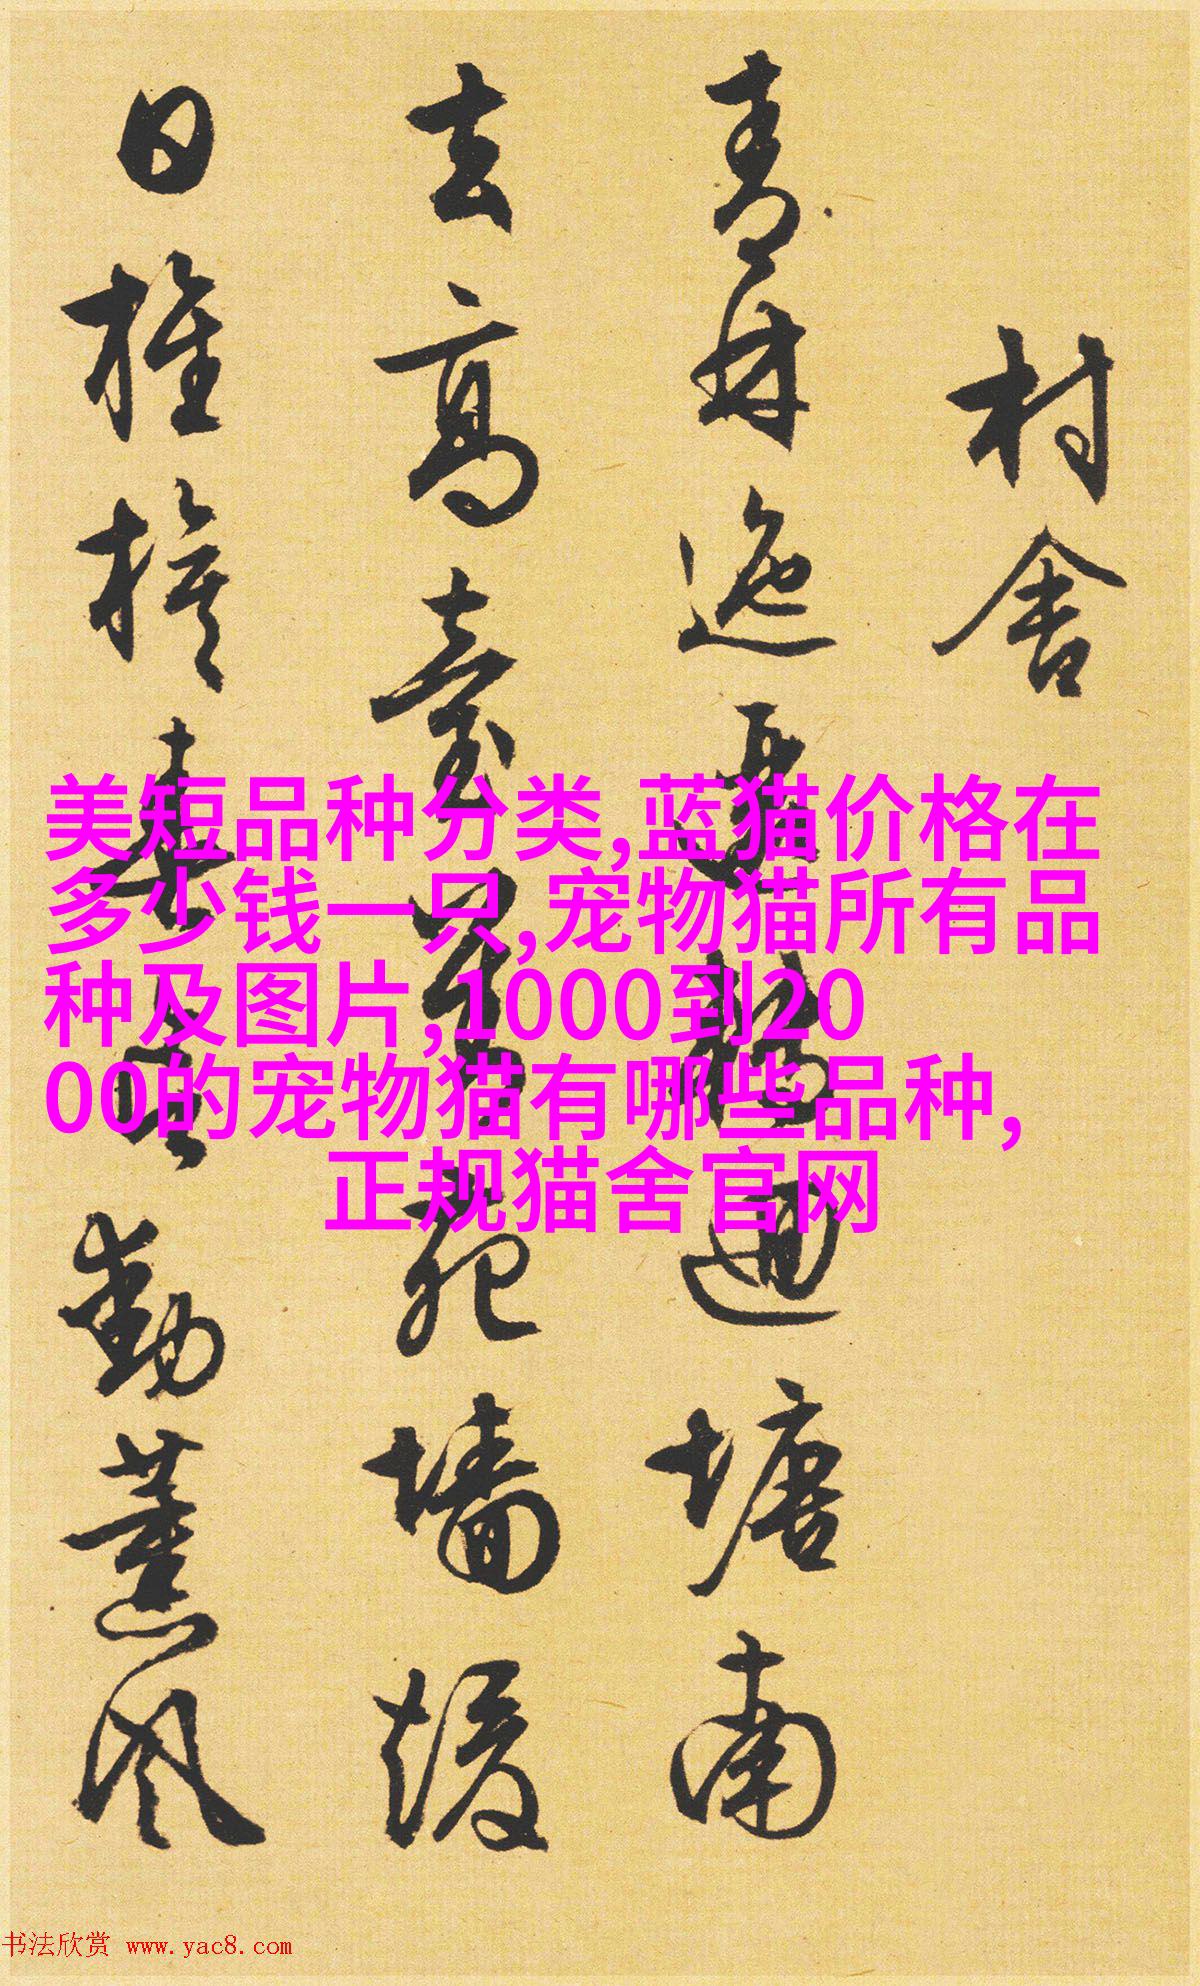 村舍
青林迤逦轉迴塘南
去高臺苑墙煖
日動薰風
美短品种分类,蓝猫价格在
多少钱一只,宠物猫所有品
种及图片,1000到20
00的宠物猫有哪些品种,
正规猫舍官网
书法欣赏 www.yac8.com